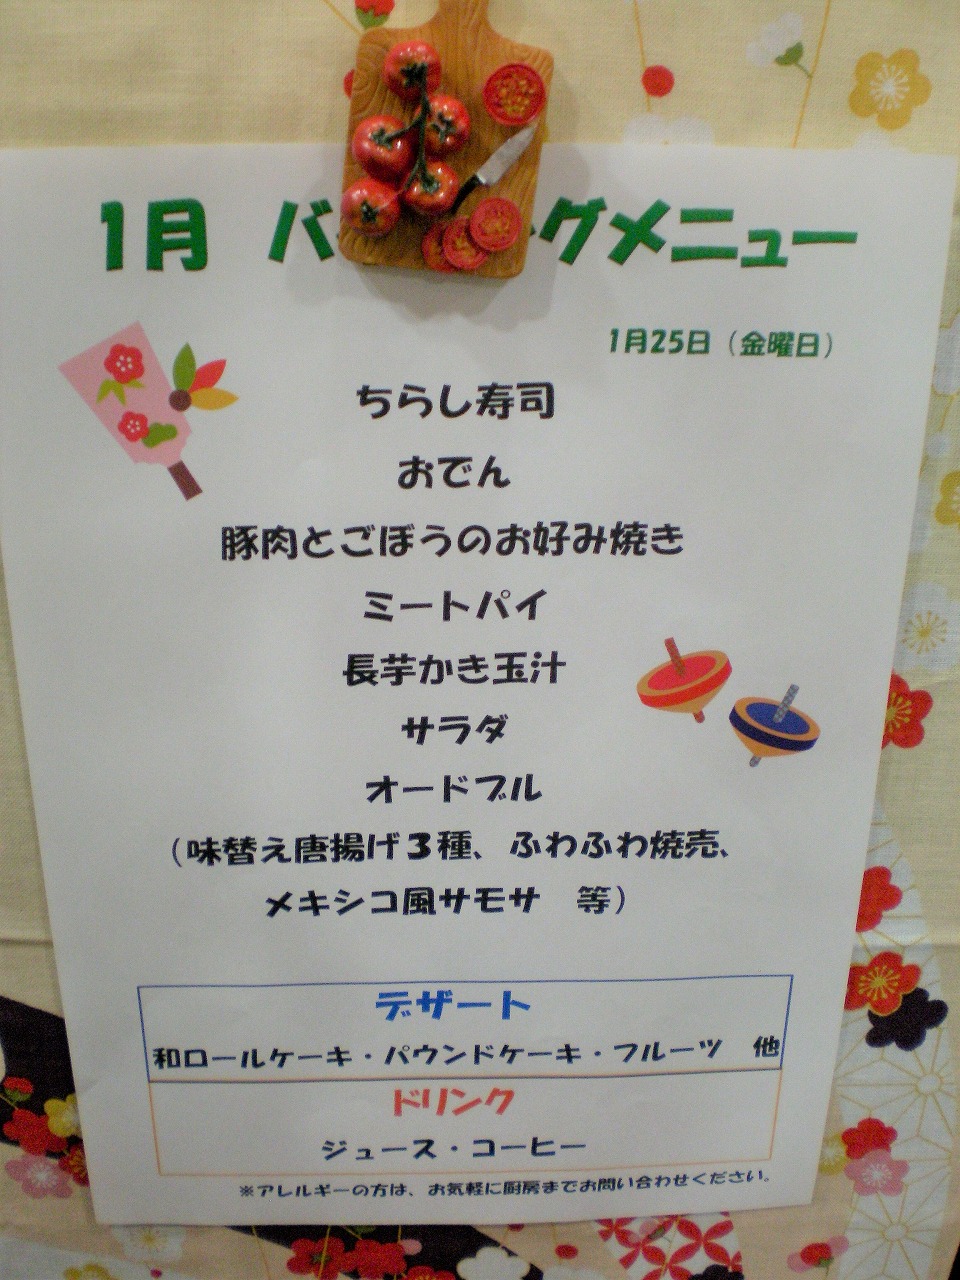 1月 バ グメニュー
1月25日（金曜日）
ちらし寿司
おでん
豚肉とごぼうのお好み焼き
ミートパイ
長芋かき玉汁
サラダ
オードブル
（味替え唐揚げ３種、ふわふわ焼売、
メキシコ風サモサ　等）
デザート
和ロールケーキ・パウンドケーキ・フルーツ　他
ドリンク
ジュース・コーヒー
※アレルギーの方は、お気軽に厨房までお問い合わせください。